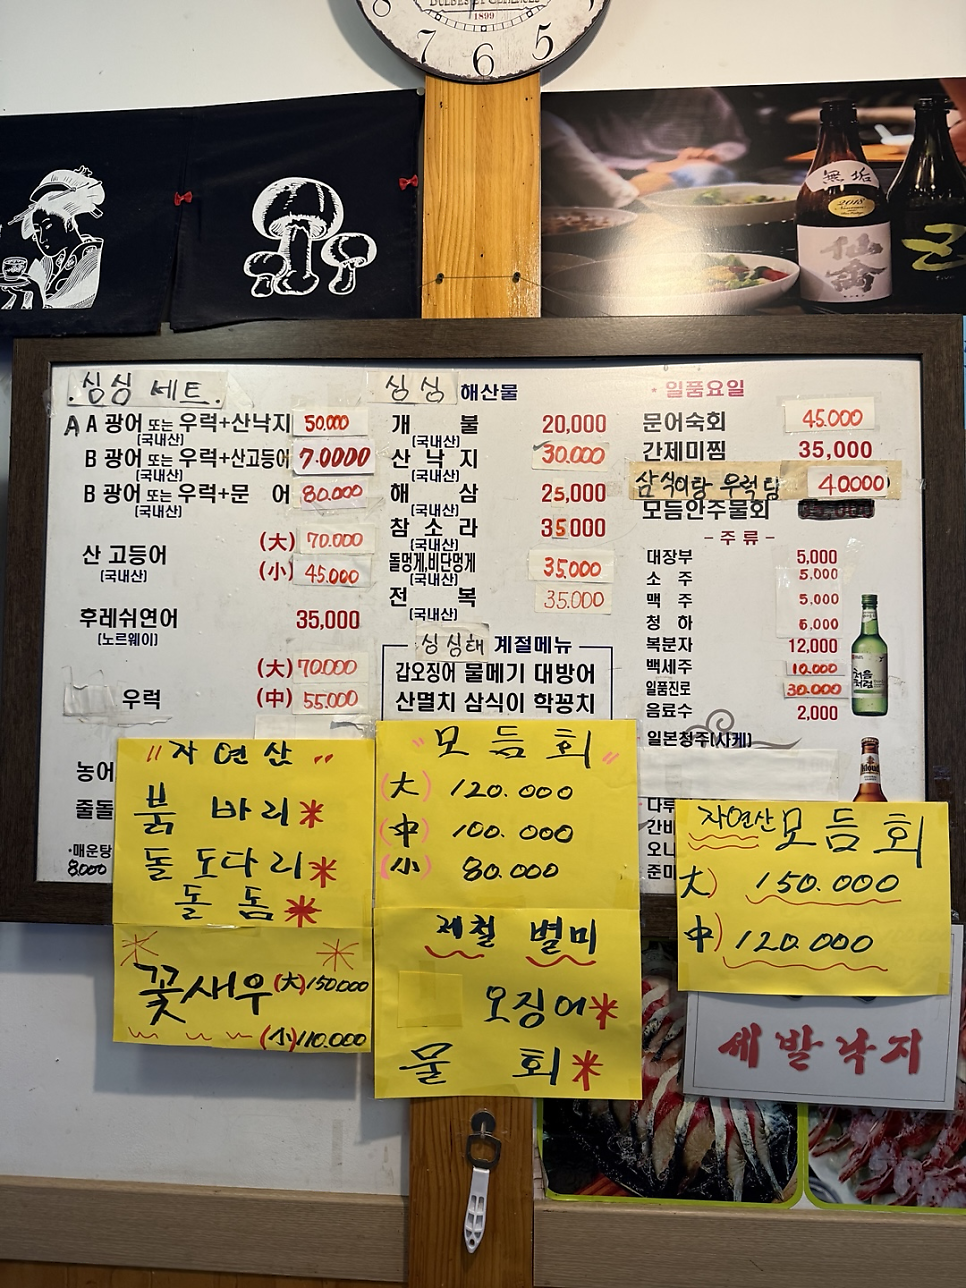 8 7 6 5
1899
無垢
2018
仙禽
싱싱 세트.
A A 광어 또는 우럭+산낙지 50.000
(국내산)
B 광어 또는 우럭+산고등어 7.0000
(국내산)
B 광어 또는 우럭+문 어 80.000
(국내산)
산 고등어 (大) 70.000
(국내산) (小) 45.000
후레쉬연어 35,000
(노르웨이)
(大) 70.000
우럭 (中) 55.000
농어
줄돌
*매운탕
8.000
싱싱 해산물
개 불 20,000
(국내산)
산 낙 지 30.000
(국내산)
해 삼 25,000
(국내산)
참 소 라 35000
(국내산)
돌멍게,비단멍게 35.000
(국내산)
전 복 35.000
(국내산)
싱싱해 계절메뉴
갑오징어 물메기 대방어
산멸치 삼식이 학꽁치
* 일품요일
문어숙회 45.000
간제미찜 35,000
삼식이탕 우럭탕 40.000
모듬안주물회
- 주 류 -
대장부 5,000
소 주 5.000
맥 주 5,000
청 하 6,000
복분자 12,000
백세주 10.000
일품진로 30.000
음료수 2,000
처음처럼
일본청주(사케)
다루
간바
오니
준마
"자 연 산"
붉 바 리 *
돌 도다리 *
돌 돔 *
꽃새우 (大) 150.000
(小) 110.000
"모 듬 회"
(大) 120.000
(中) 100.000
(小) 80.000
제철 별미
오징어 *
물 회 *
자연산 모듬회
大) 150.000
中) 120.000
세발낙지